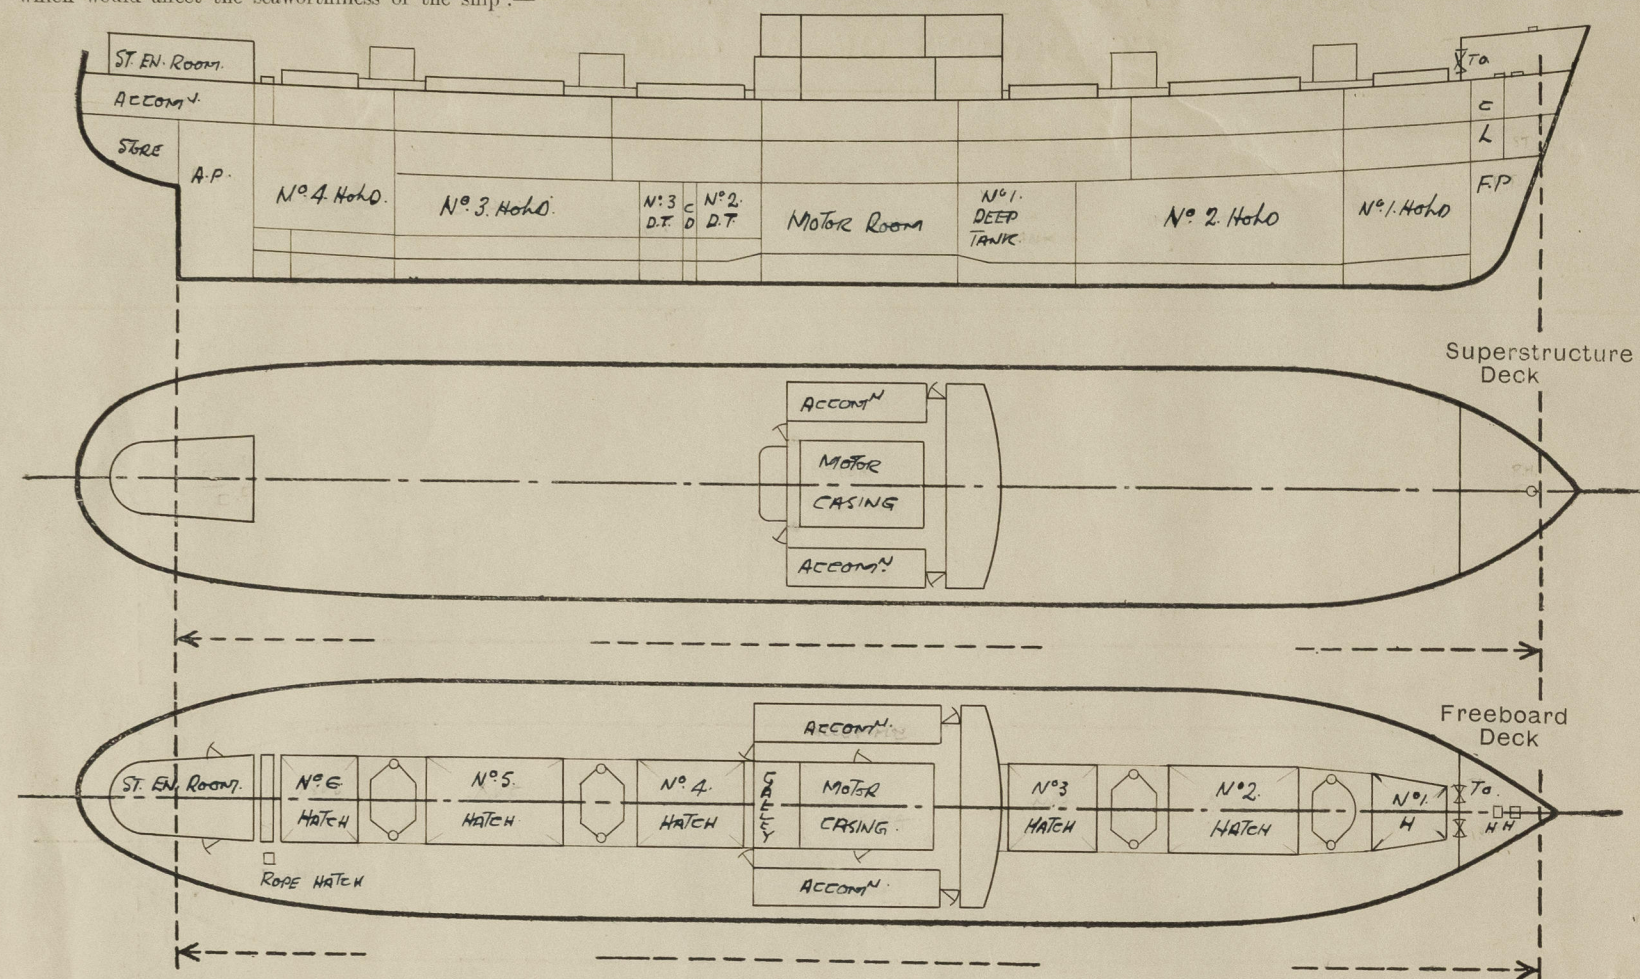 which would affect the seaworthiness of the ship :—
ST. EN. ROOM.
ACCOMN.
STORE
A.P.
No. 4. HOLD.
No. 3. HOLD.
No. 3 D.T.
C D
No. 2. D.T
MOTOR ROOM
No. 1. DEEP TANK.
No. 2. HOLD
No. 1. HOLD
To
C
L
F.P
Superstructure
Deck
ACCOMN
MOTOR
CASING
ACCOMN.
Freeboard
Deck
ST. EN. ROOM.
No. 6
HATCH
No. 5.
HATCH
No. 4.
HATCH
GALLEY
ACCOMN.
MOTOR
CASING.
ACCOMN.
No. 3
HATCH
No. 2.
HATCH
No. 1.
H
To.
H H
ROPE HATCH